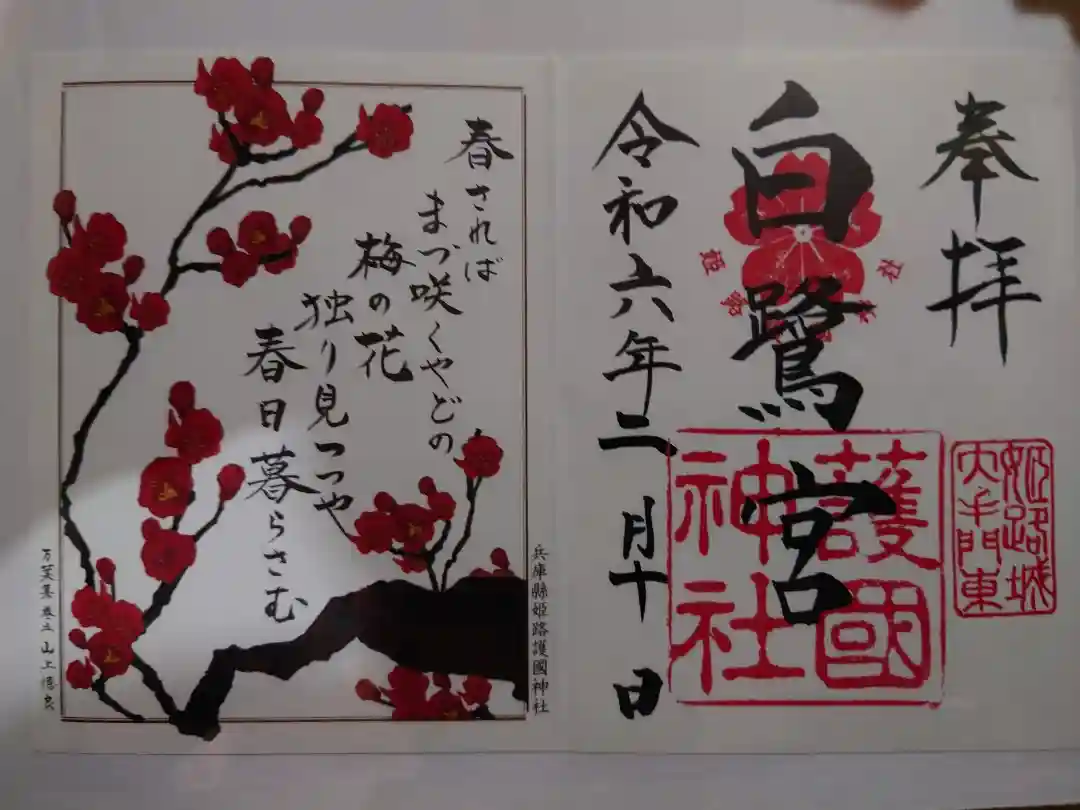 奉拝
白鷺宮
令和六年二月十日
護國
神社
姫路城
大手門東
春されば
まづ咲くやどの
梅の花
独り見つつや
春日暮らさむ
兵庫縣姫路護國神社
万葉集 巻五 山上憶良